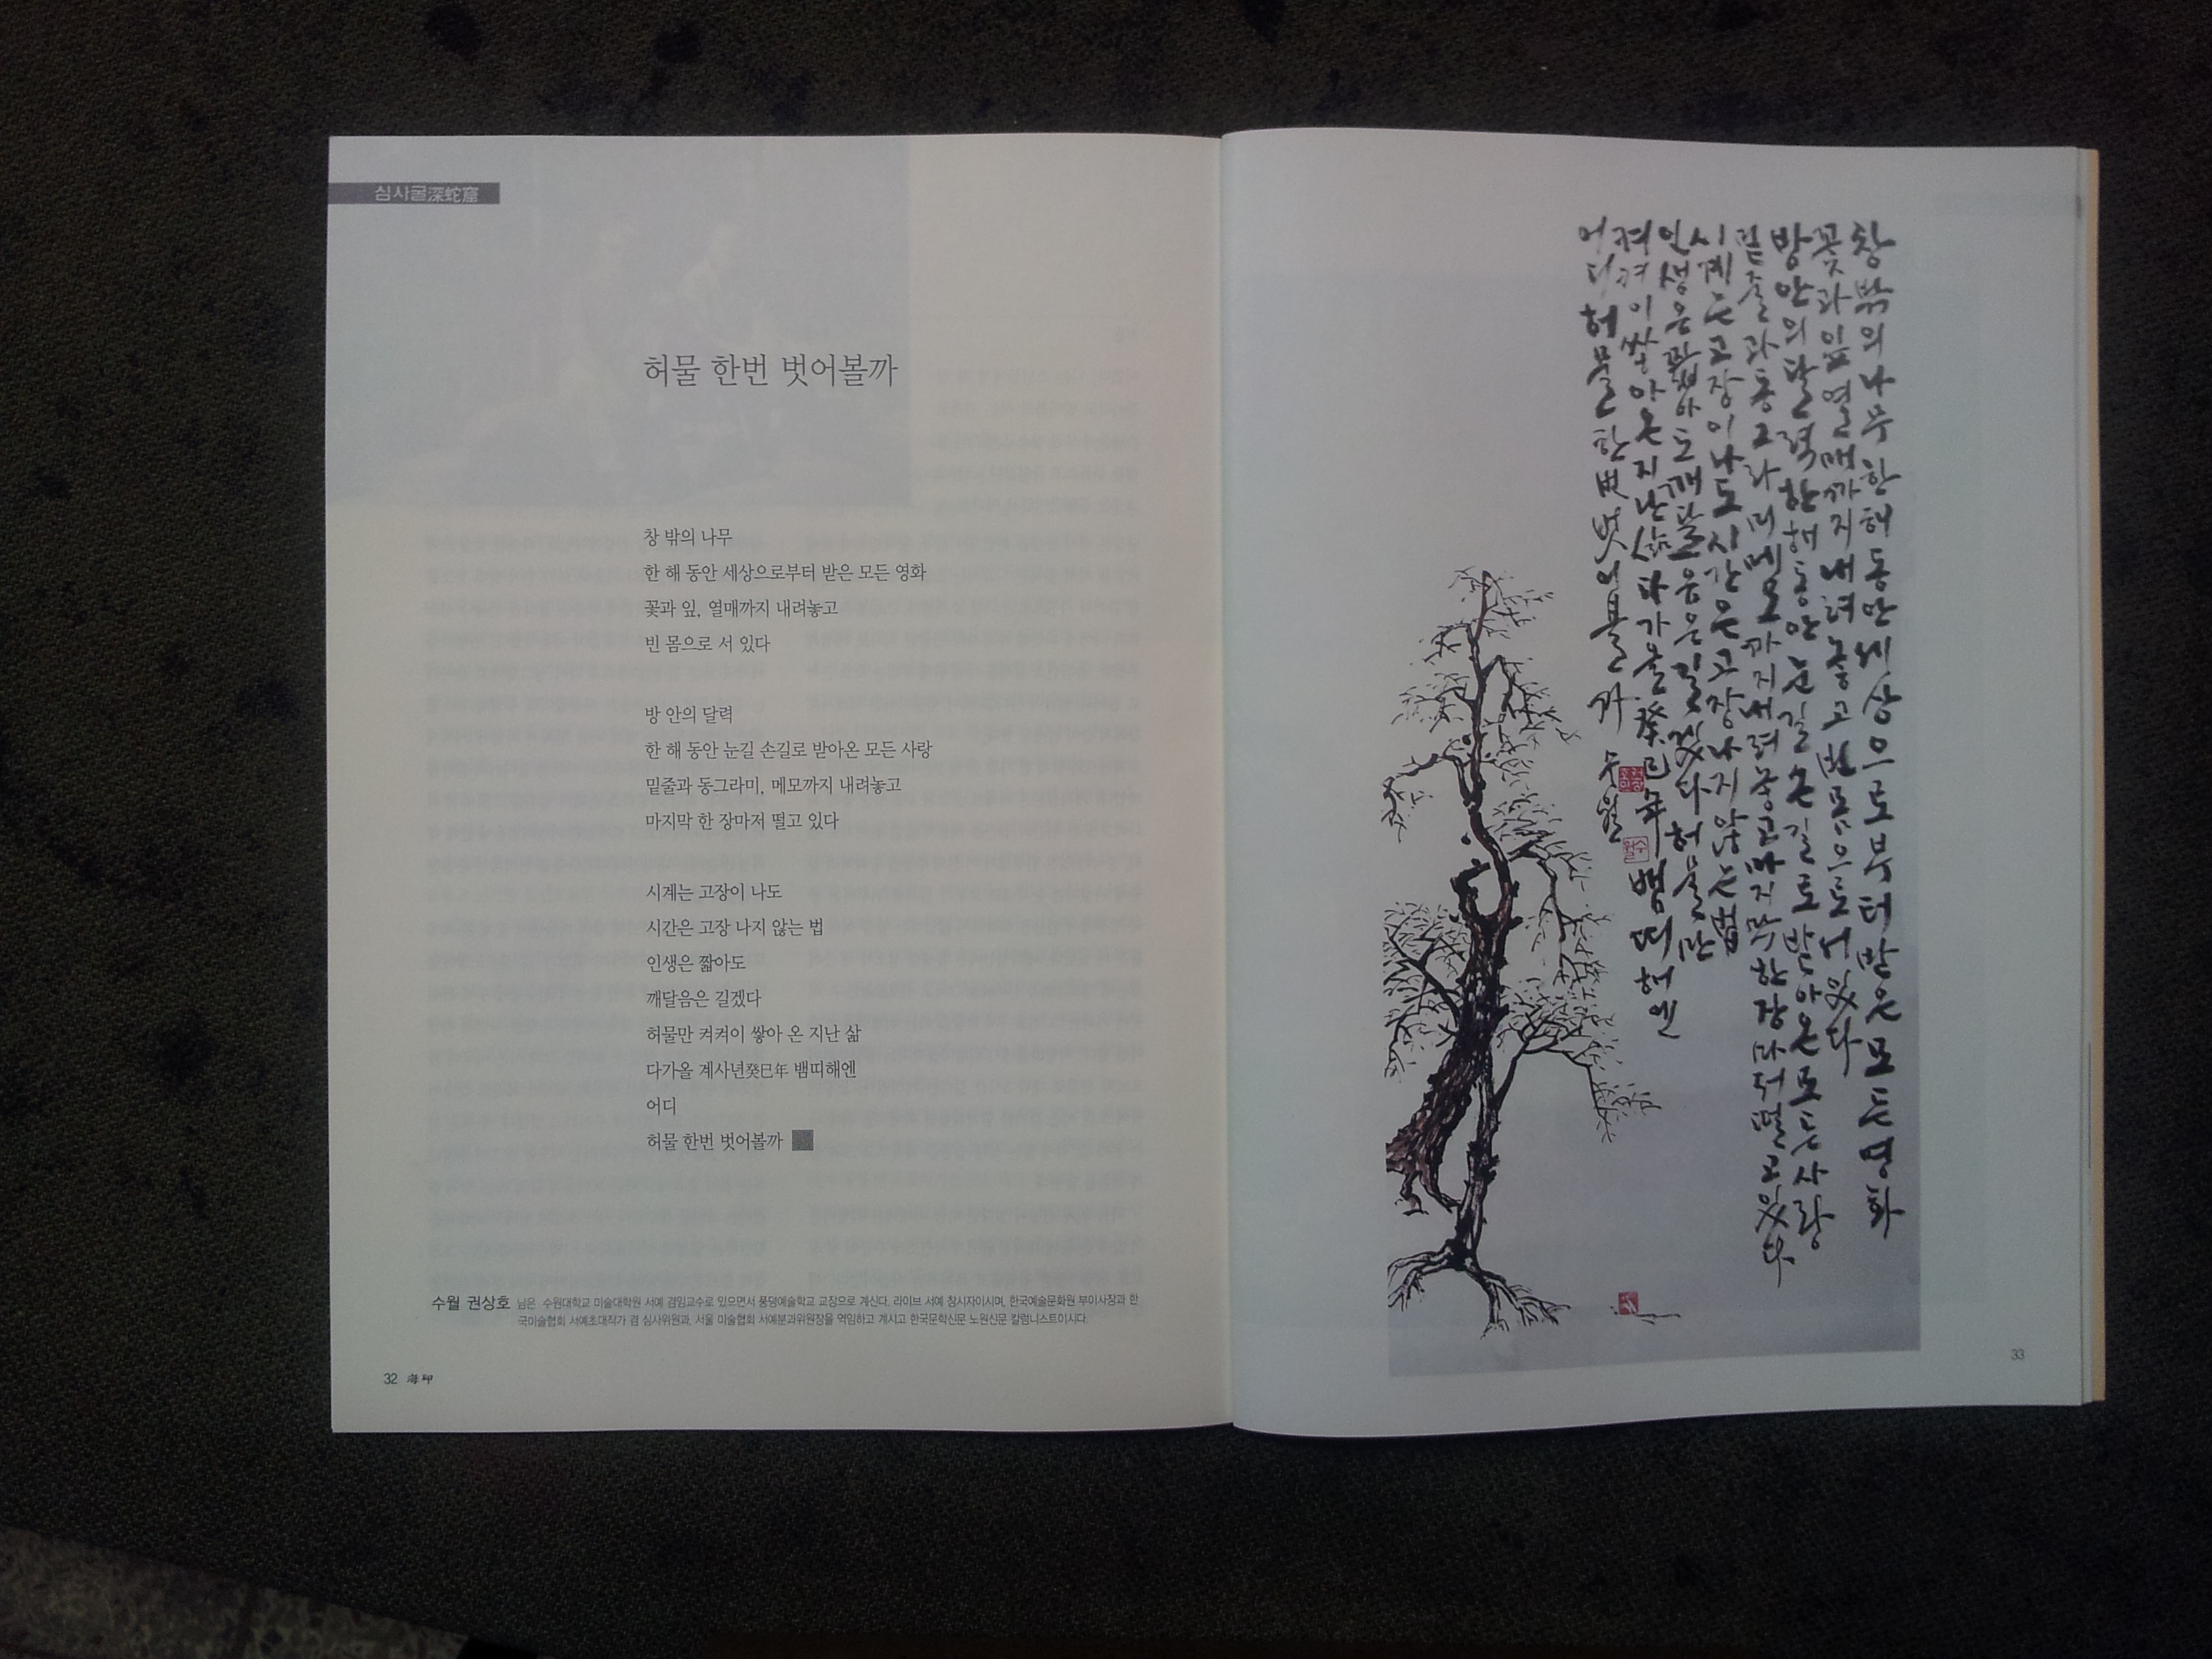 심사굴深蛇窟
허물 한번 벗어볼까
창 밖의 나무
한 해 동안 세상으로부터 받은 모든 영화
꽃과 잎, 열매까지 내려놓고
빈 몸으로 서 있다
방 안의 달력
한 해 동안 눈길 손길로 받아온 모든 사랑
밑줄과 동그라미, 메모까지 내려놓고
마지막 한 장마저 떨고 있다
시계는 고장이 나도
시간은 고장 나지 않는 법
인생은 짧아도
깨달음은 길겠다
허물만 켜켜이 쌓아 온 지난 삶
다가올 계사년癸巳年 뱀띠해엔
어디
허물 한번 벗어볼까
수월 권상호 님은 수원대학교 미술대학원 서예 겸임교수로 있으면서 풍덩예술학교 교장으로 계신다. 라이브 서예 창시자이시며, 한국예술문화원 부이사장과 한
국미술협회 서예초대작가 겸 심사위원과, 서울 미술협회 서예분과위원장을 역임하고 계시고 한국문학신문 노원신문 칼럼니스트이시다.
32 海印
창밖의나무한해동안세상으로부터받은모든영화
꽃과잎열매까지내려놓고빈몸으로서있다
방안의달력한해동안눈길손길로받아온모든사랑
밑줄과동그라미메모까지내려놓고마지막한장마저떨고있다
시계는고장이나도시간은고장나지않는법
인생은짧아도깨달음은길겠다허물만
켜켜이쌓아온지난삶다가올癸巳年뱀띠해엔
어디허물한번벗어볼까 수월
수월
33